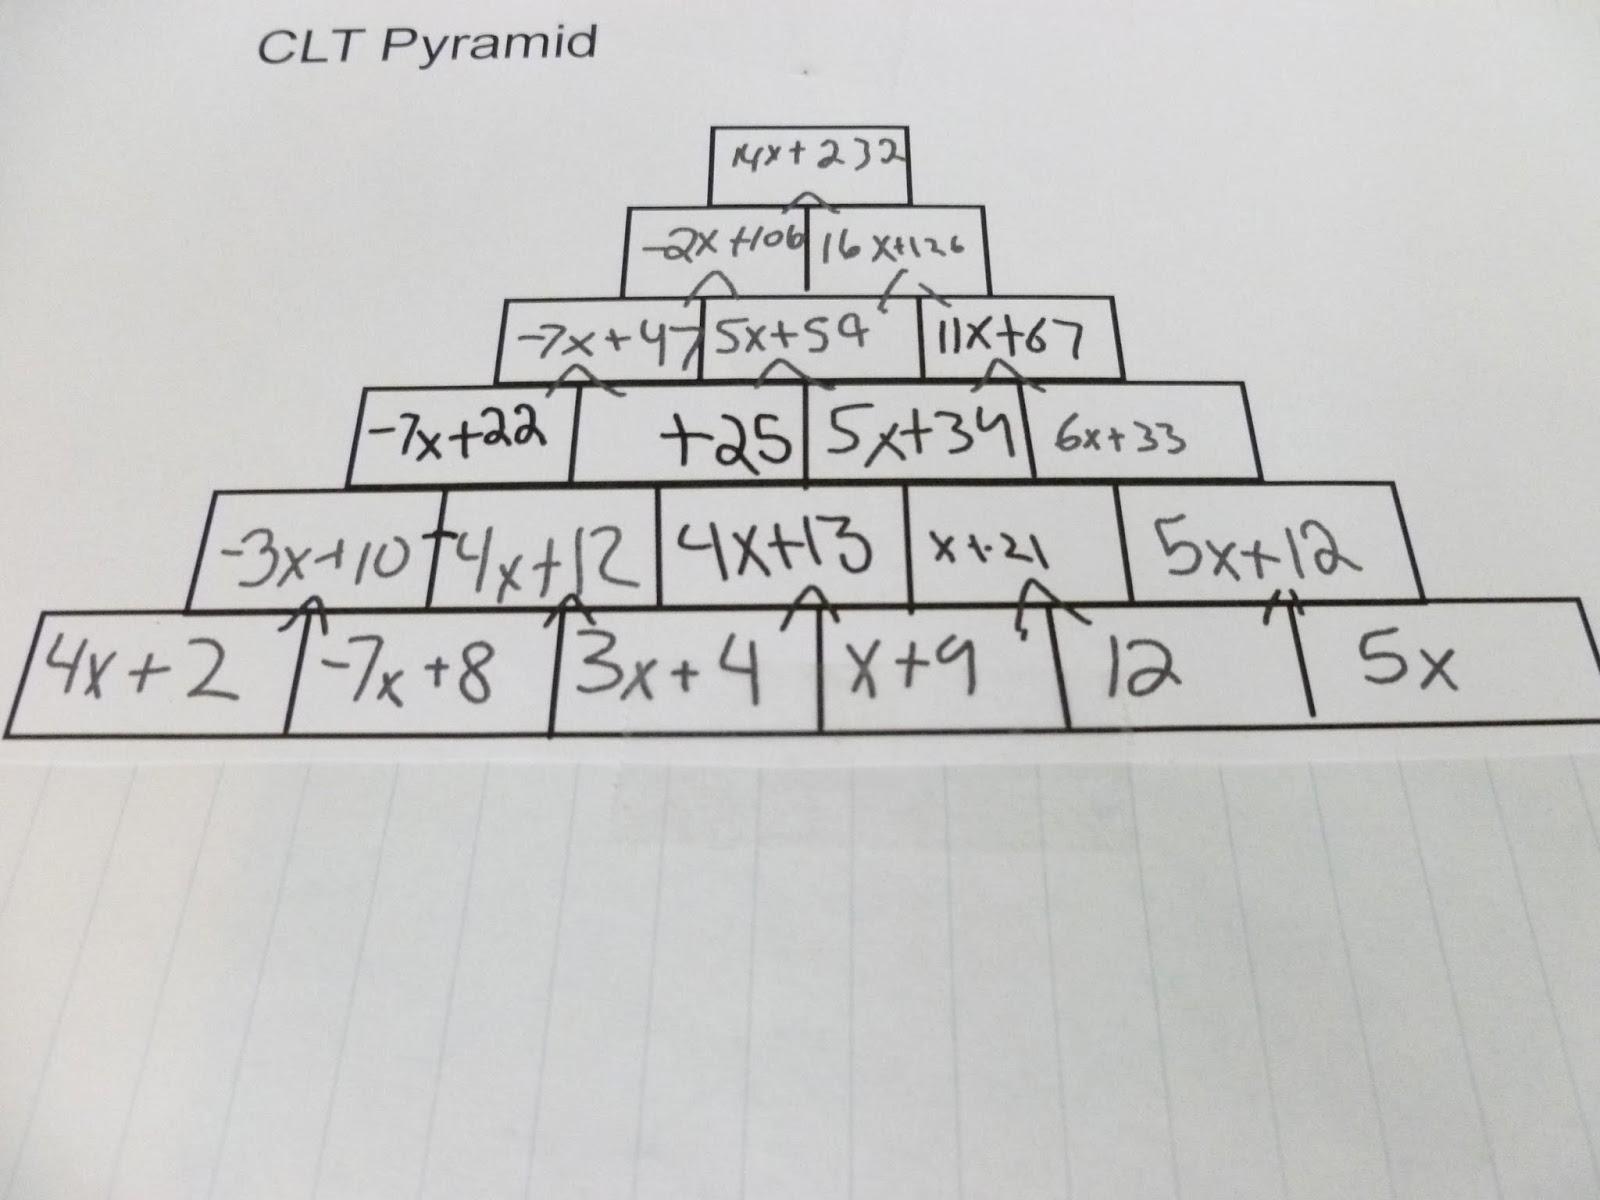 CLT Pyramid
14x+232
-2x+106 16x+126
-7x+47 5x+59 11x+67
-7x+22 +25 5x+34 6x+33
-3x+10 +4x+12 4x+13 x+21 5x+12
4x+2 -7x+8 3x+4 x+9 12 5x